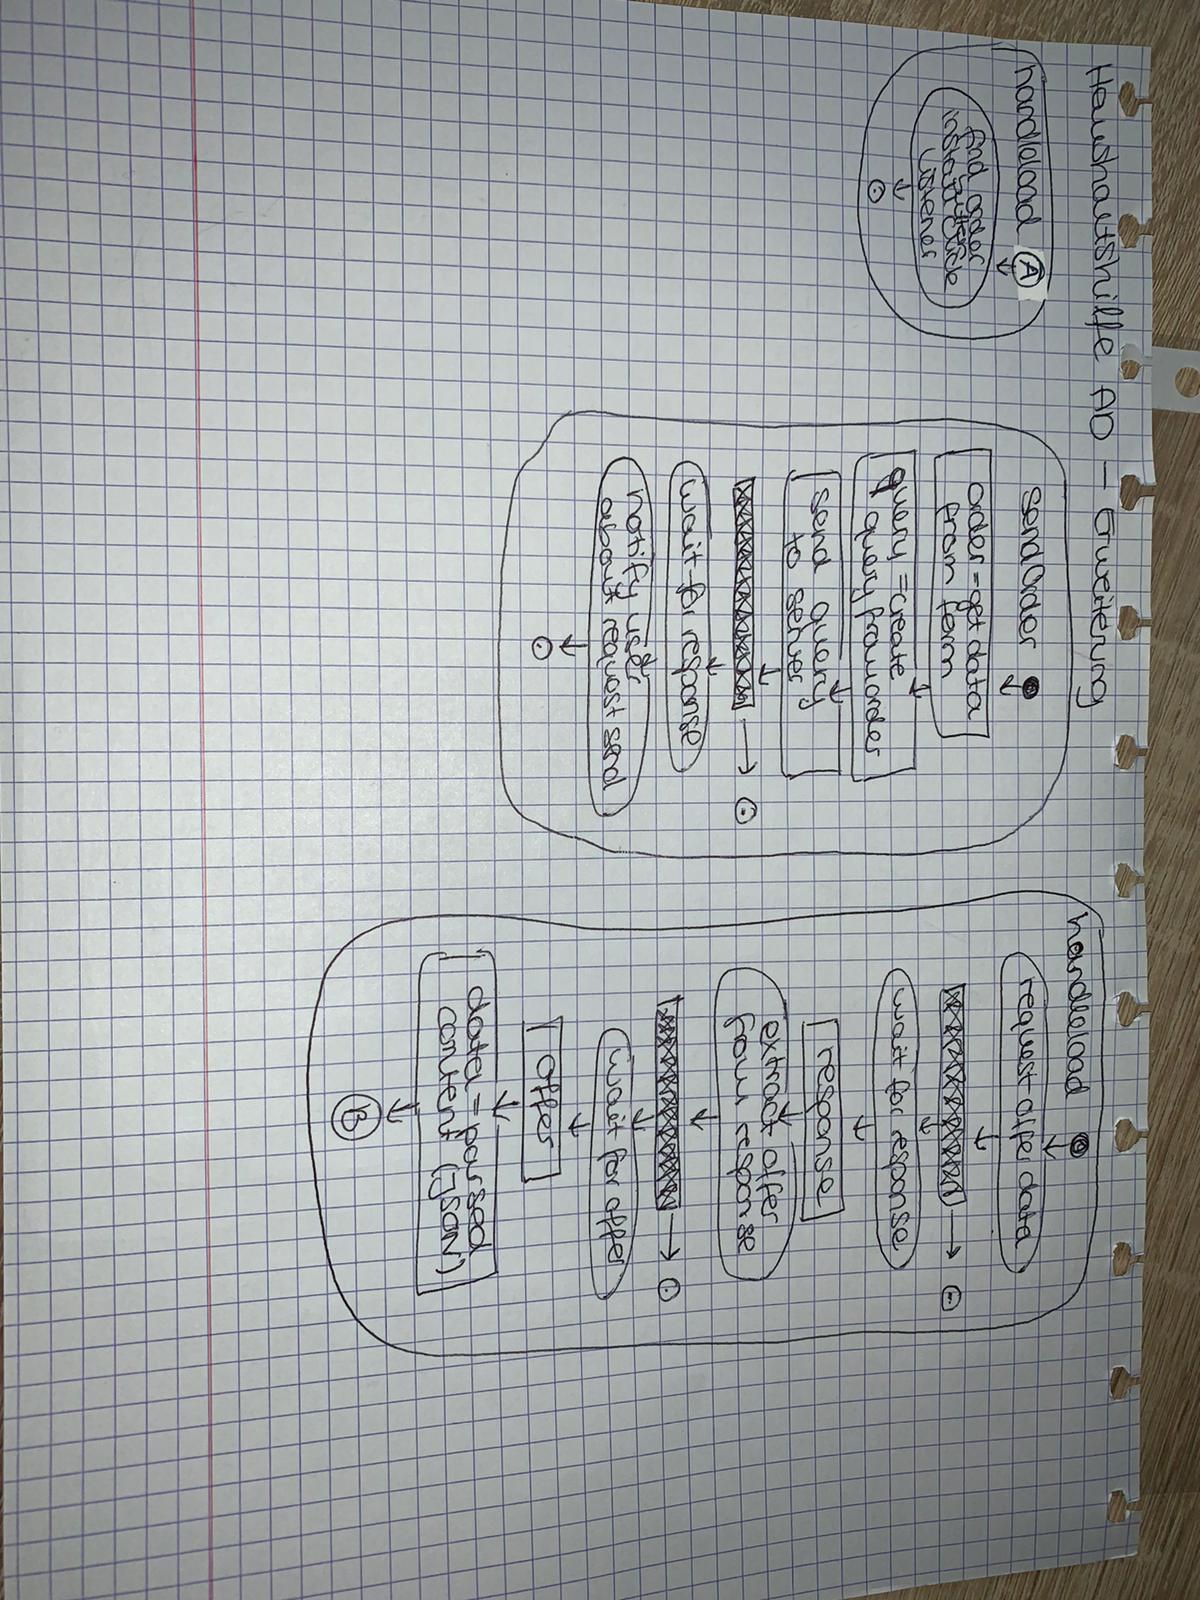 Haushaltshilfe AD - Erweiterung
handleload
A
find order
button
install click
listener
sendOrder
order = get data
from form
query = create
query from order
send query
to server
wait for response
notify user
about request send
handleload
request offer data
wait for response
response
extract offer
from response
wait for offer
offer
data = parsed
content (JSON)
B